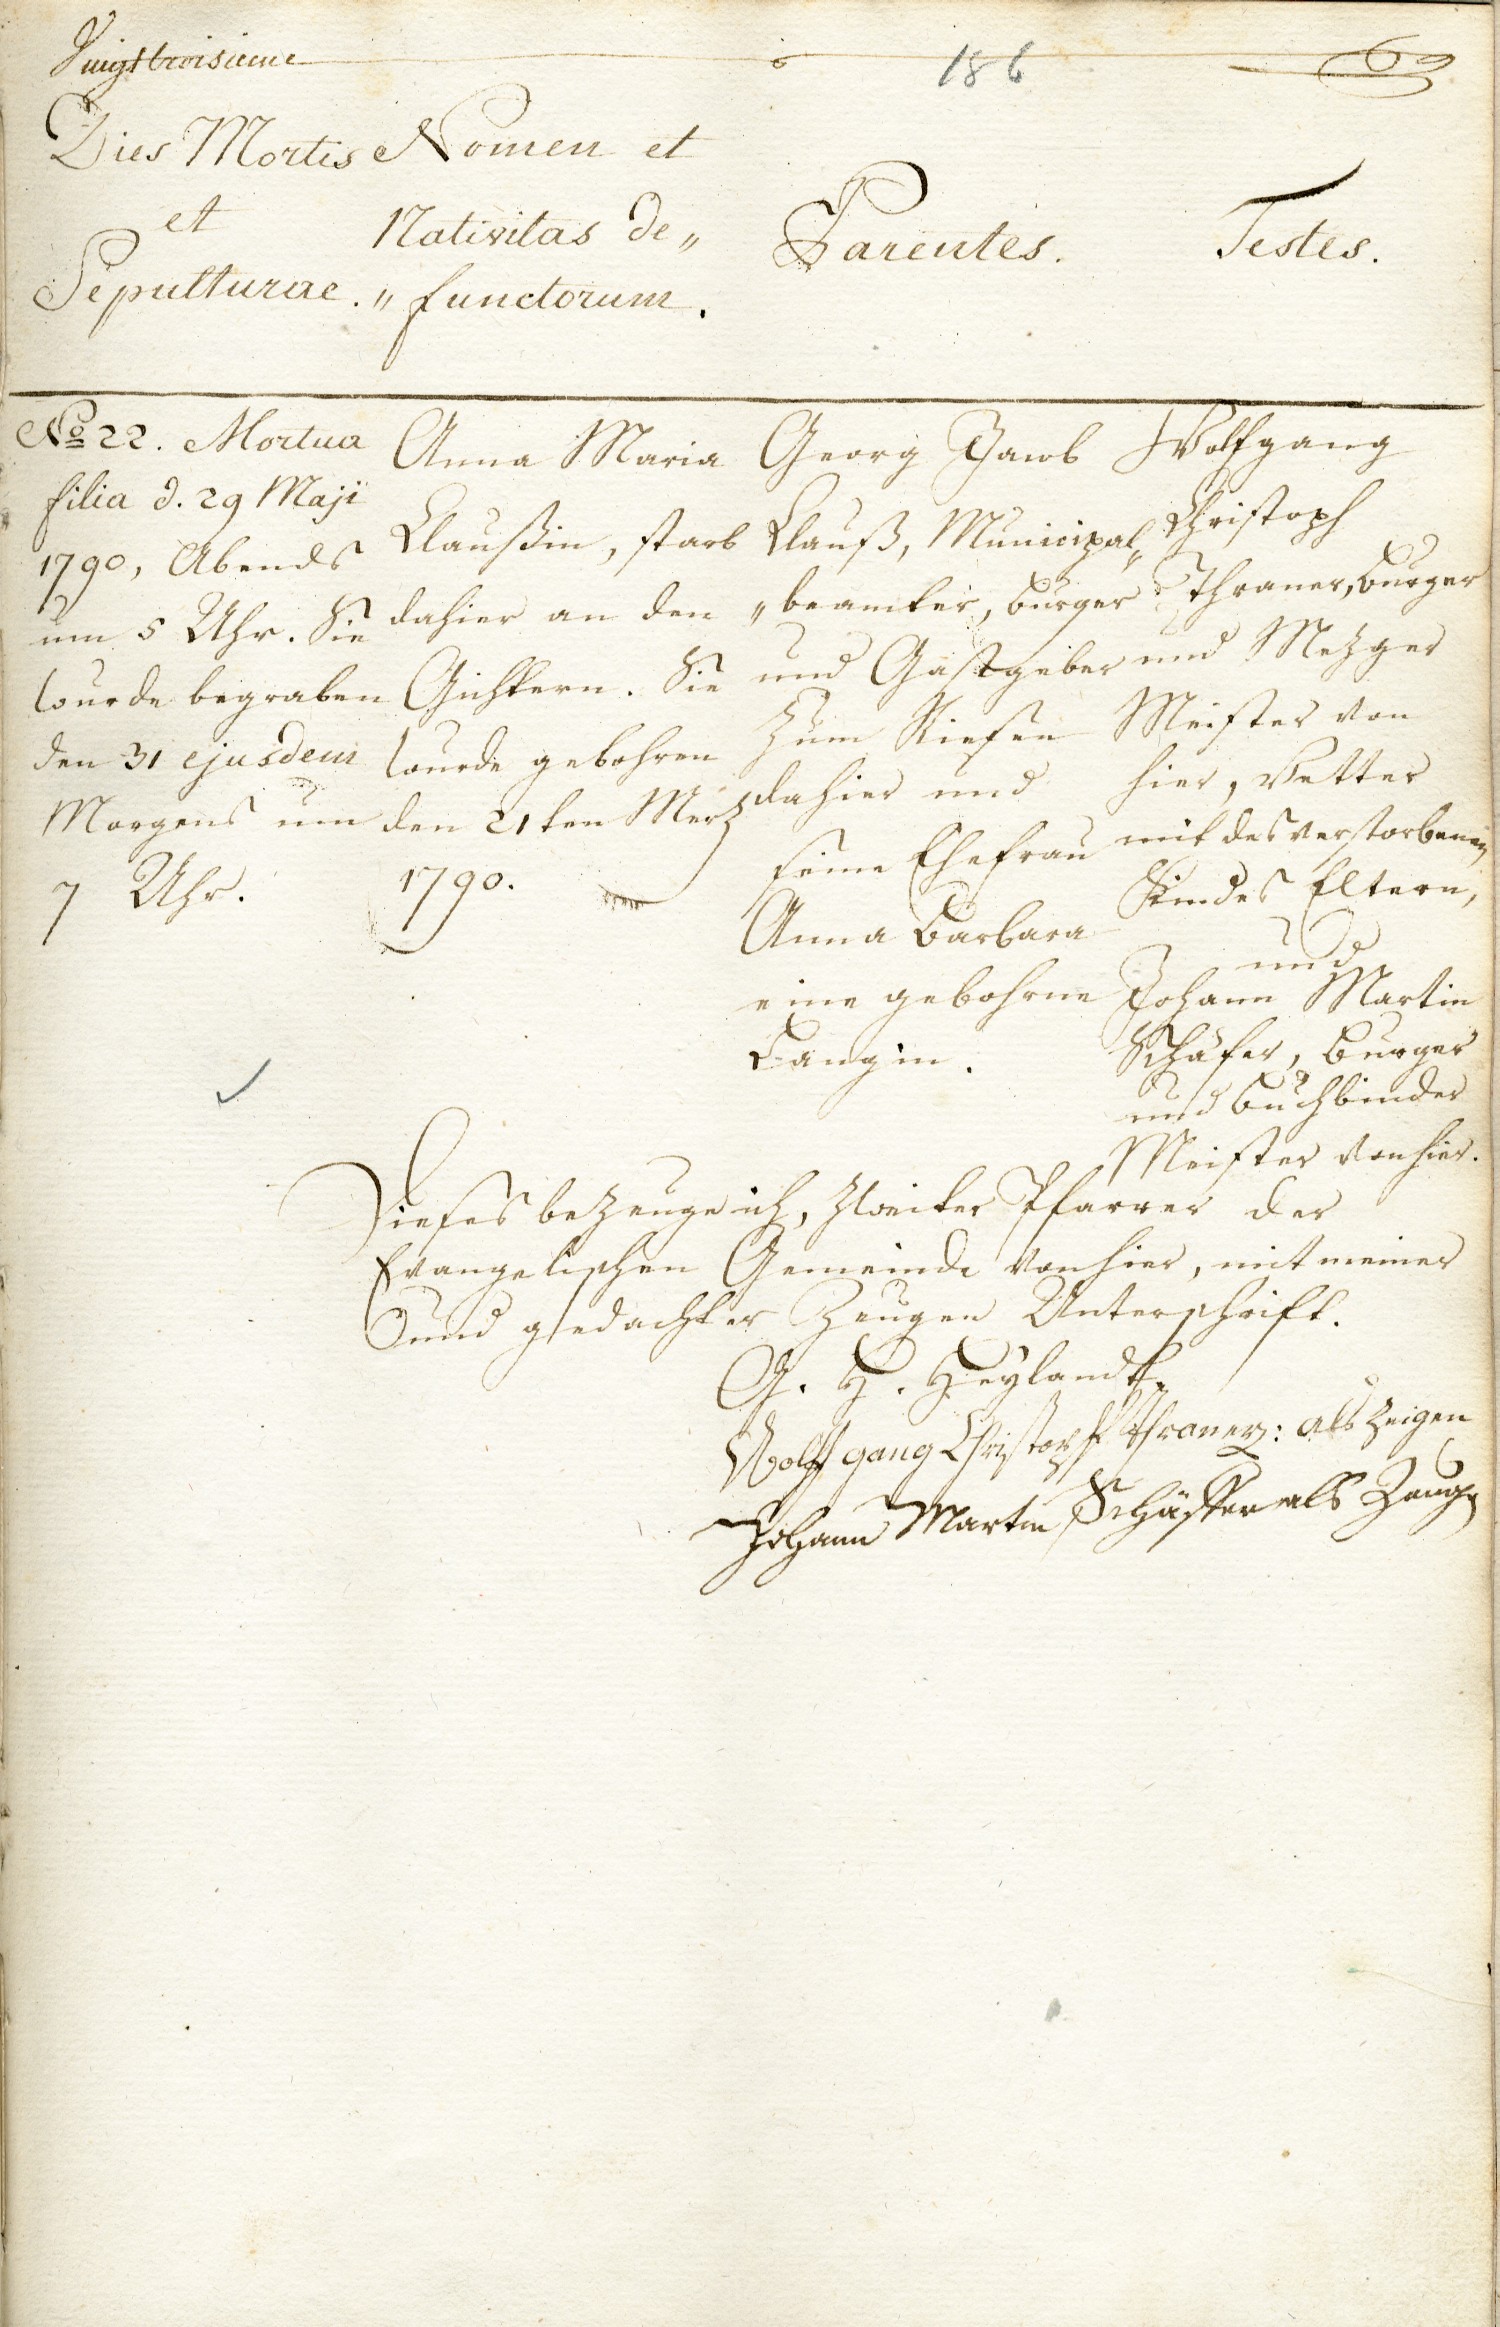 Vingttroisieme
186
Dies Mortis
et
Sepulturae.
Nomen et
Nativitas de„
„functorum.
Parentes.
Testes.
No 22. Mortua
filia d. 29 Maji
1790, Abends
um 5 Uhr. Sie
wurde begraben
den 31 ejusdem
Morgens um
7 Uhr.
Anna Maria
Claußin, starb
dahier an den
Gichtern. Sie
wurde gebohren
den 21ten Merz
1790.
Georg Jacob
Clauß, Municipal„
„beamter, Burger
und Gastgeber
zum Riesen
dahier und
seine Ehefrau
Anna Barbara
eine gebohrne
Langin.
Wolfgang
Christoph
Thraner, Burger
und Mezger
Meister von
hier, Vetter
mit des verstorbenen
Kindes Eltern,
und
Johann Martin
Schäfer, Burger
und Buchbinder
Meister von hier.
Dieses bezeuge ich, zweiter Pfarrer der
Evangelischen Gemeinde von hier, mit meiner
und gedachter Zeugen Unterschrift.
G. H. Heylandt.
Wolffgang Christoph Thraner: als Zeigen
Johann Martin Schäffer als Zeuge